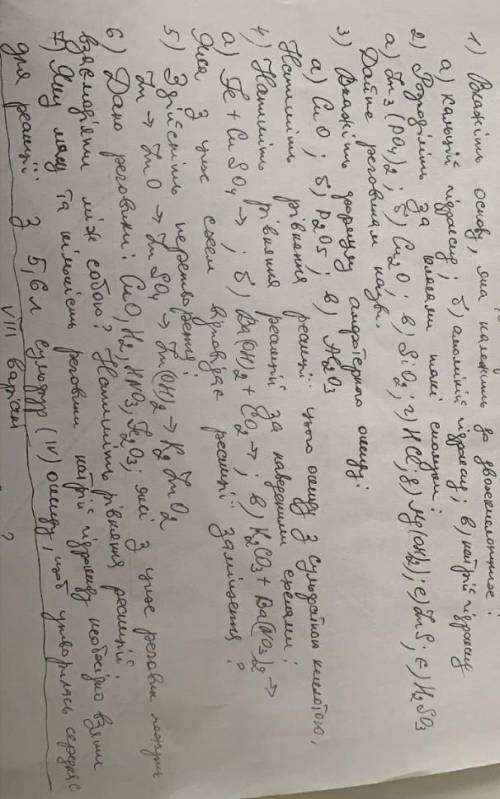 1) Вкажіть основу, яка належить до двокислотних:
а) кальцій гідроксид; б) амоліній гідроксид; в) натрій гідроксид
2) Розділіть за класами такі сполуки:
а) Zn3(PO4)2; б) Cu2O; в) SiO2; г) HCl; д) Mg(OH)2; е) ZnS; є) H2SO3
Дайте речовинам назви.
3) Вкажіть формулу амфотерного оксиду:
а) CuO; б) P2O5; в) Al2O3
Напишіть рівняння реакції цього оксиду з сульфатною кислотою,
4) Напишіть рівняння реакцій за наведеними схемами:
а) Fe + CuSO4 →; б) Ba(OH)2 + CO2 →; в) K2CO3 + Ba(NO3)2 →
Яка з цих схем відповідає реакції заміщення?
5) Здійсніть перетворення:
Zn → ZnO → ZnSO4 → Zn(OH)2 → K2ZnO2
6) Дано речовини: CuO, H2, HNO3, Fe2O3, які з цих речовин можуть
взаємодіяти між собою? Напишіть рівняння реакцій.
7) Яку масу та кількість речовини натрій гідроксиду необхідно взяти
для реакції з 5,6 л сульфур (IV) оксиду, щоб утворилась середня с
VIII варіант ?